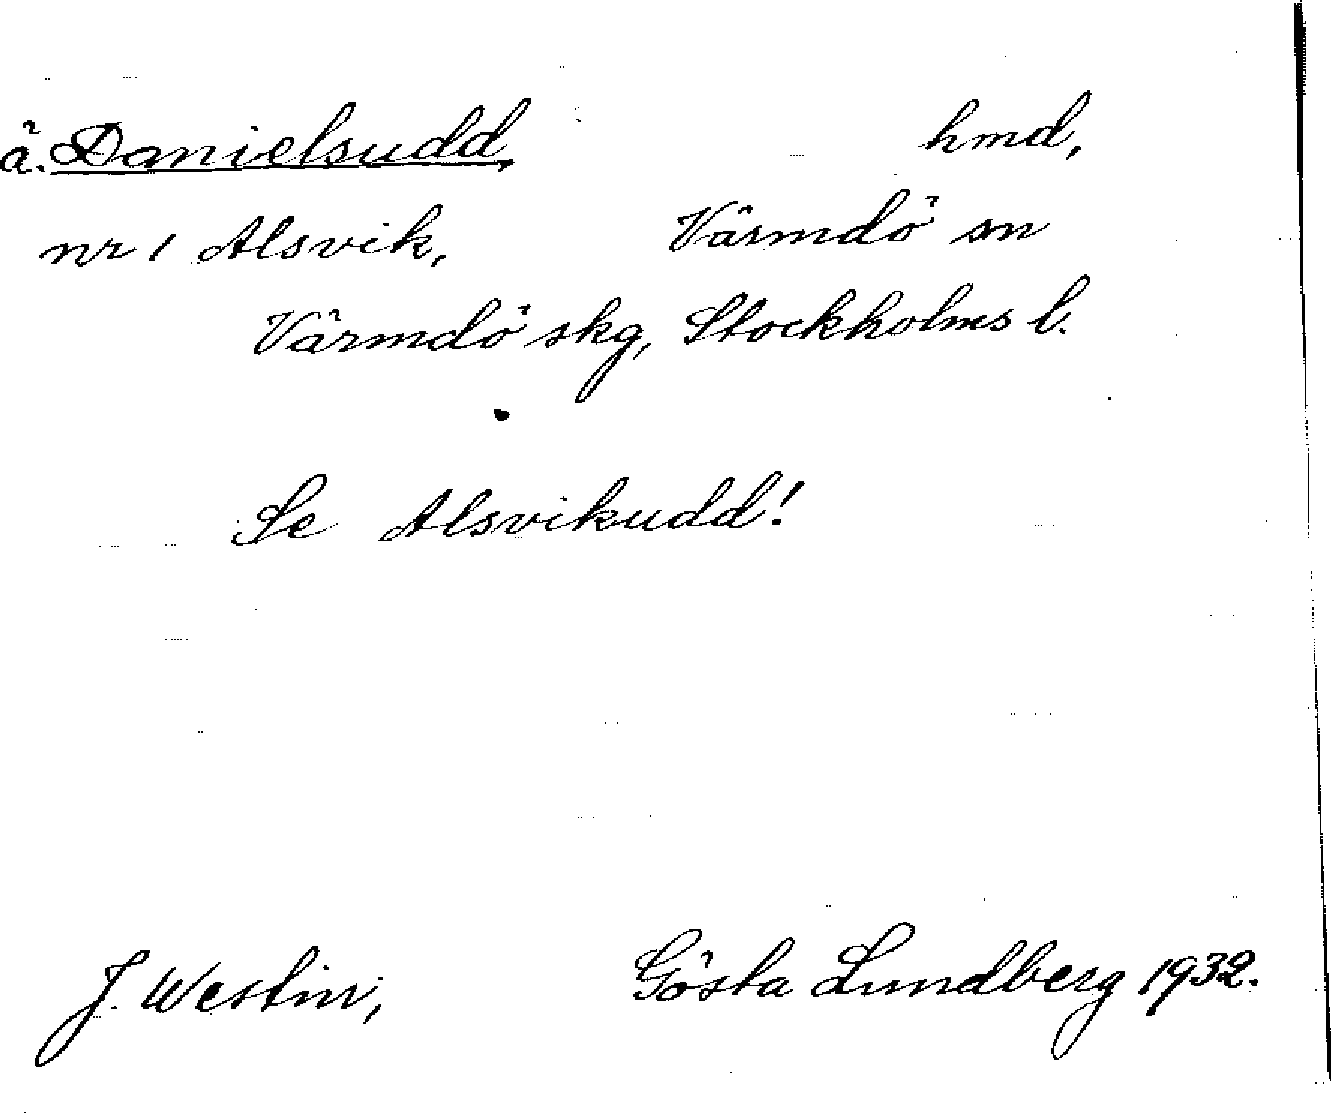 ä. Danielsudd, hmd,
nr 1 Alsvik, Värmdö sn
Värmdö skg, Stockholms l.
Se Alsvikudd!
J. Westin, Gösta Lundberg 1932.